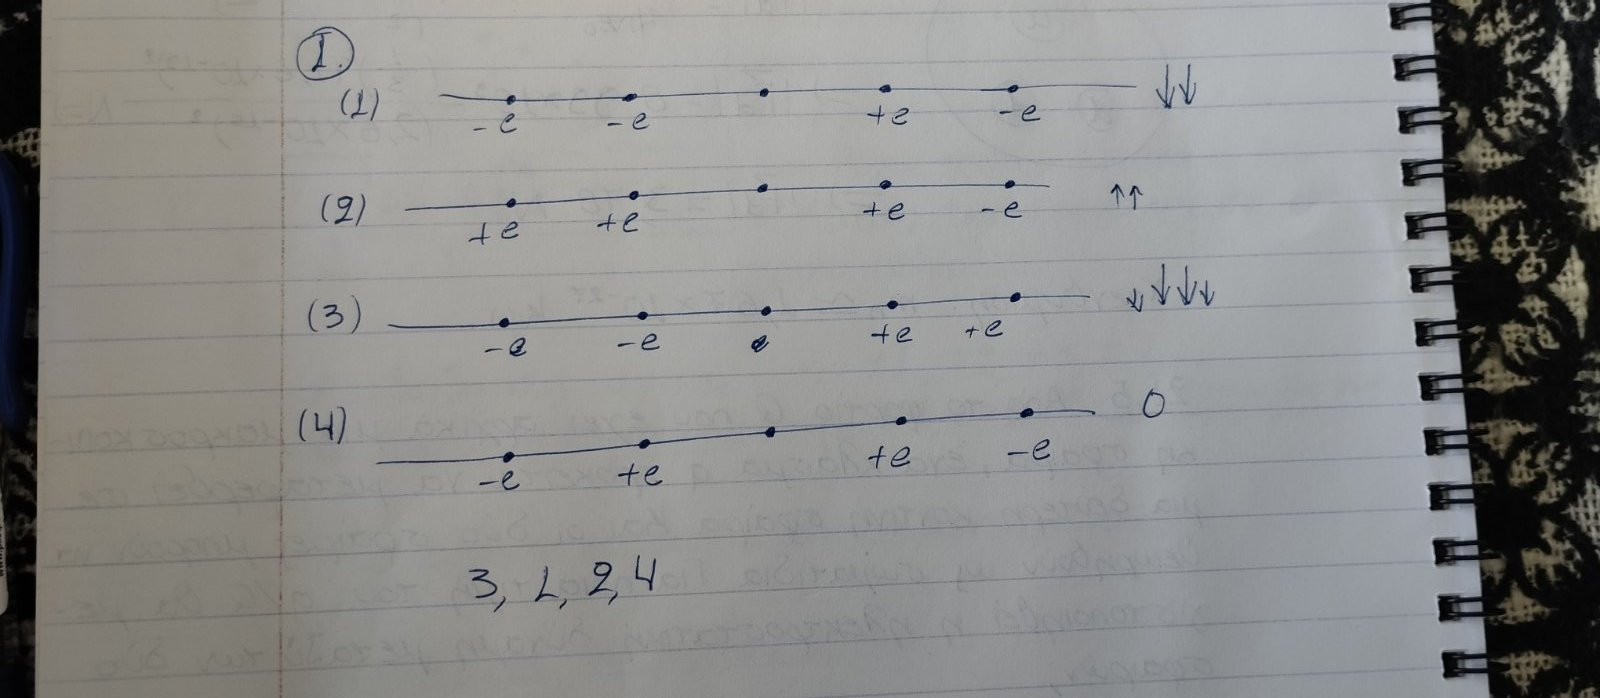 I.
(1) -e -e +e -e ↓↓
(2) +e +e +e -e ↑↑
(3) -e -e +e +e ↓↓↓↓
(4) -e +e +e -e 0
3, 1, 2, 4